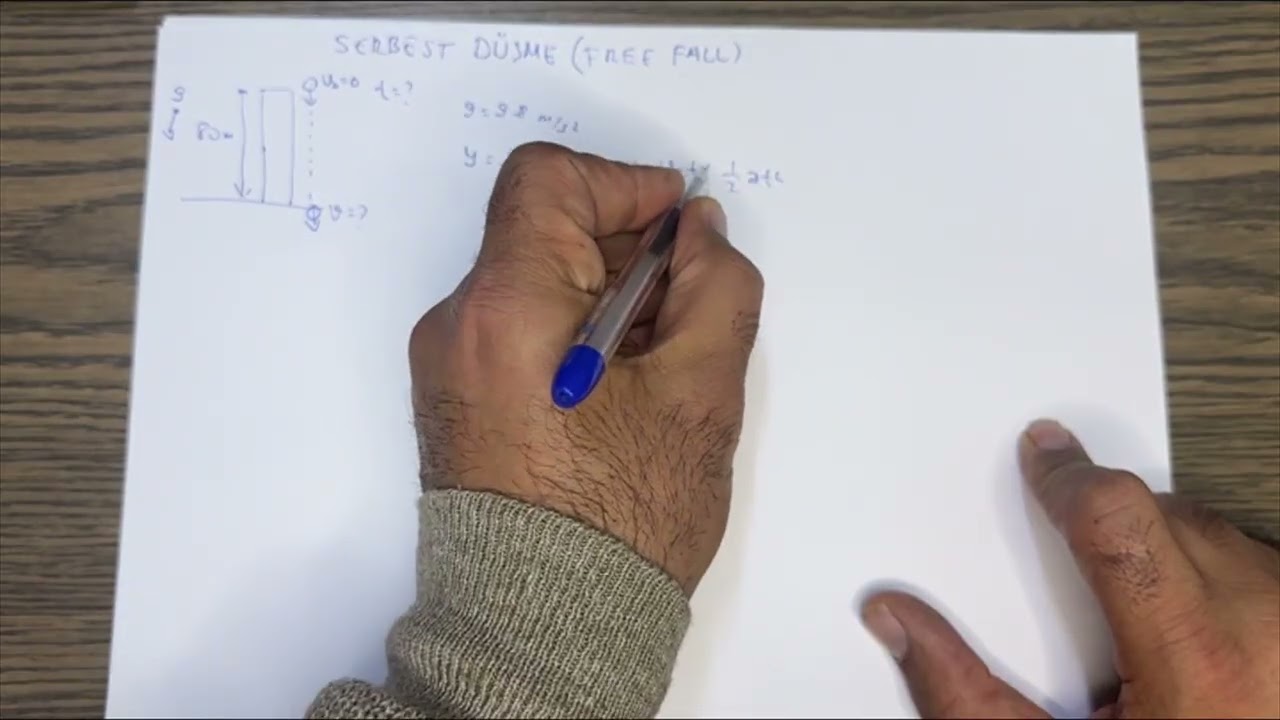 SERBEST DÜŞME (FREE FALL)
g
80m
V₀=0 t=?
V=?
g=9.8 m/s²
y=
1/2 at²